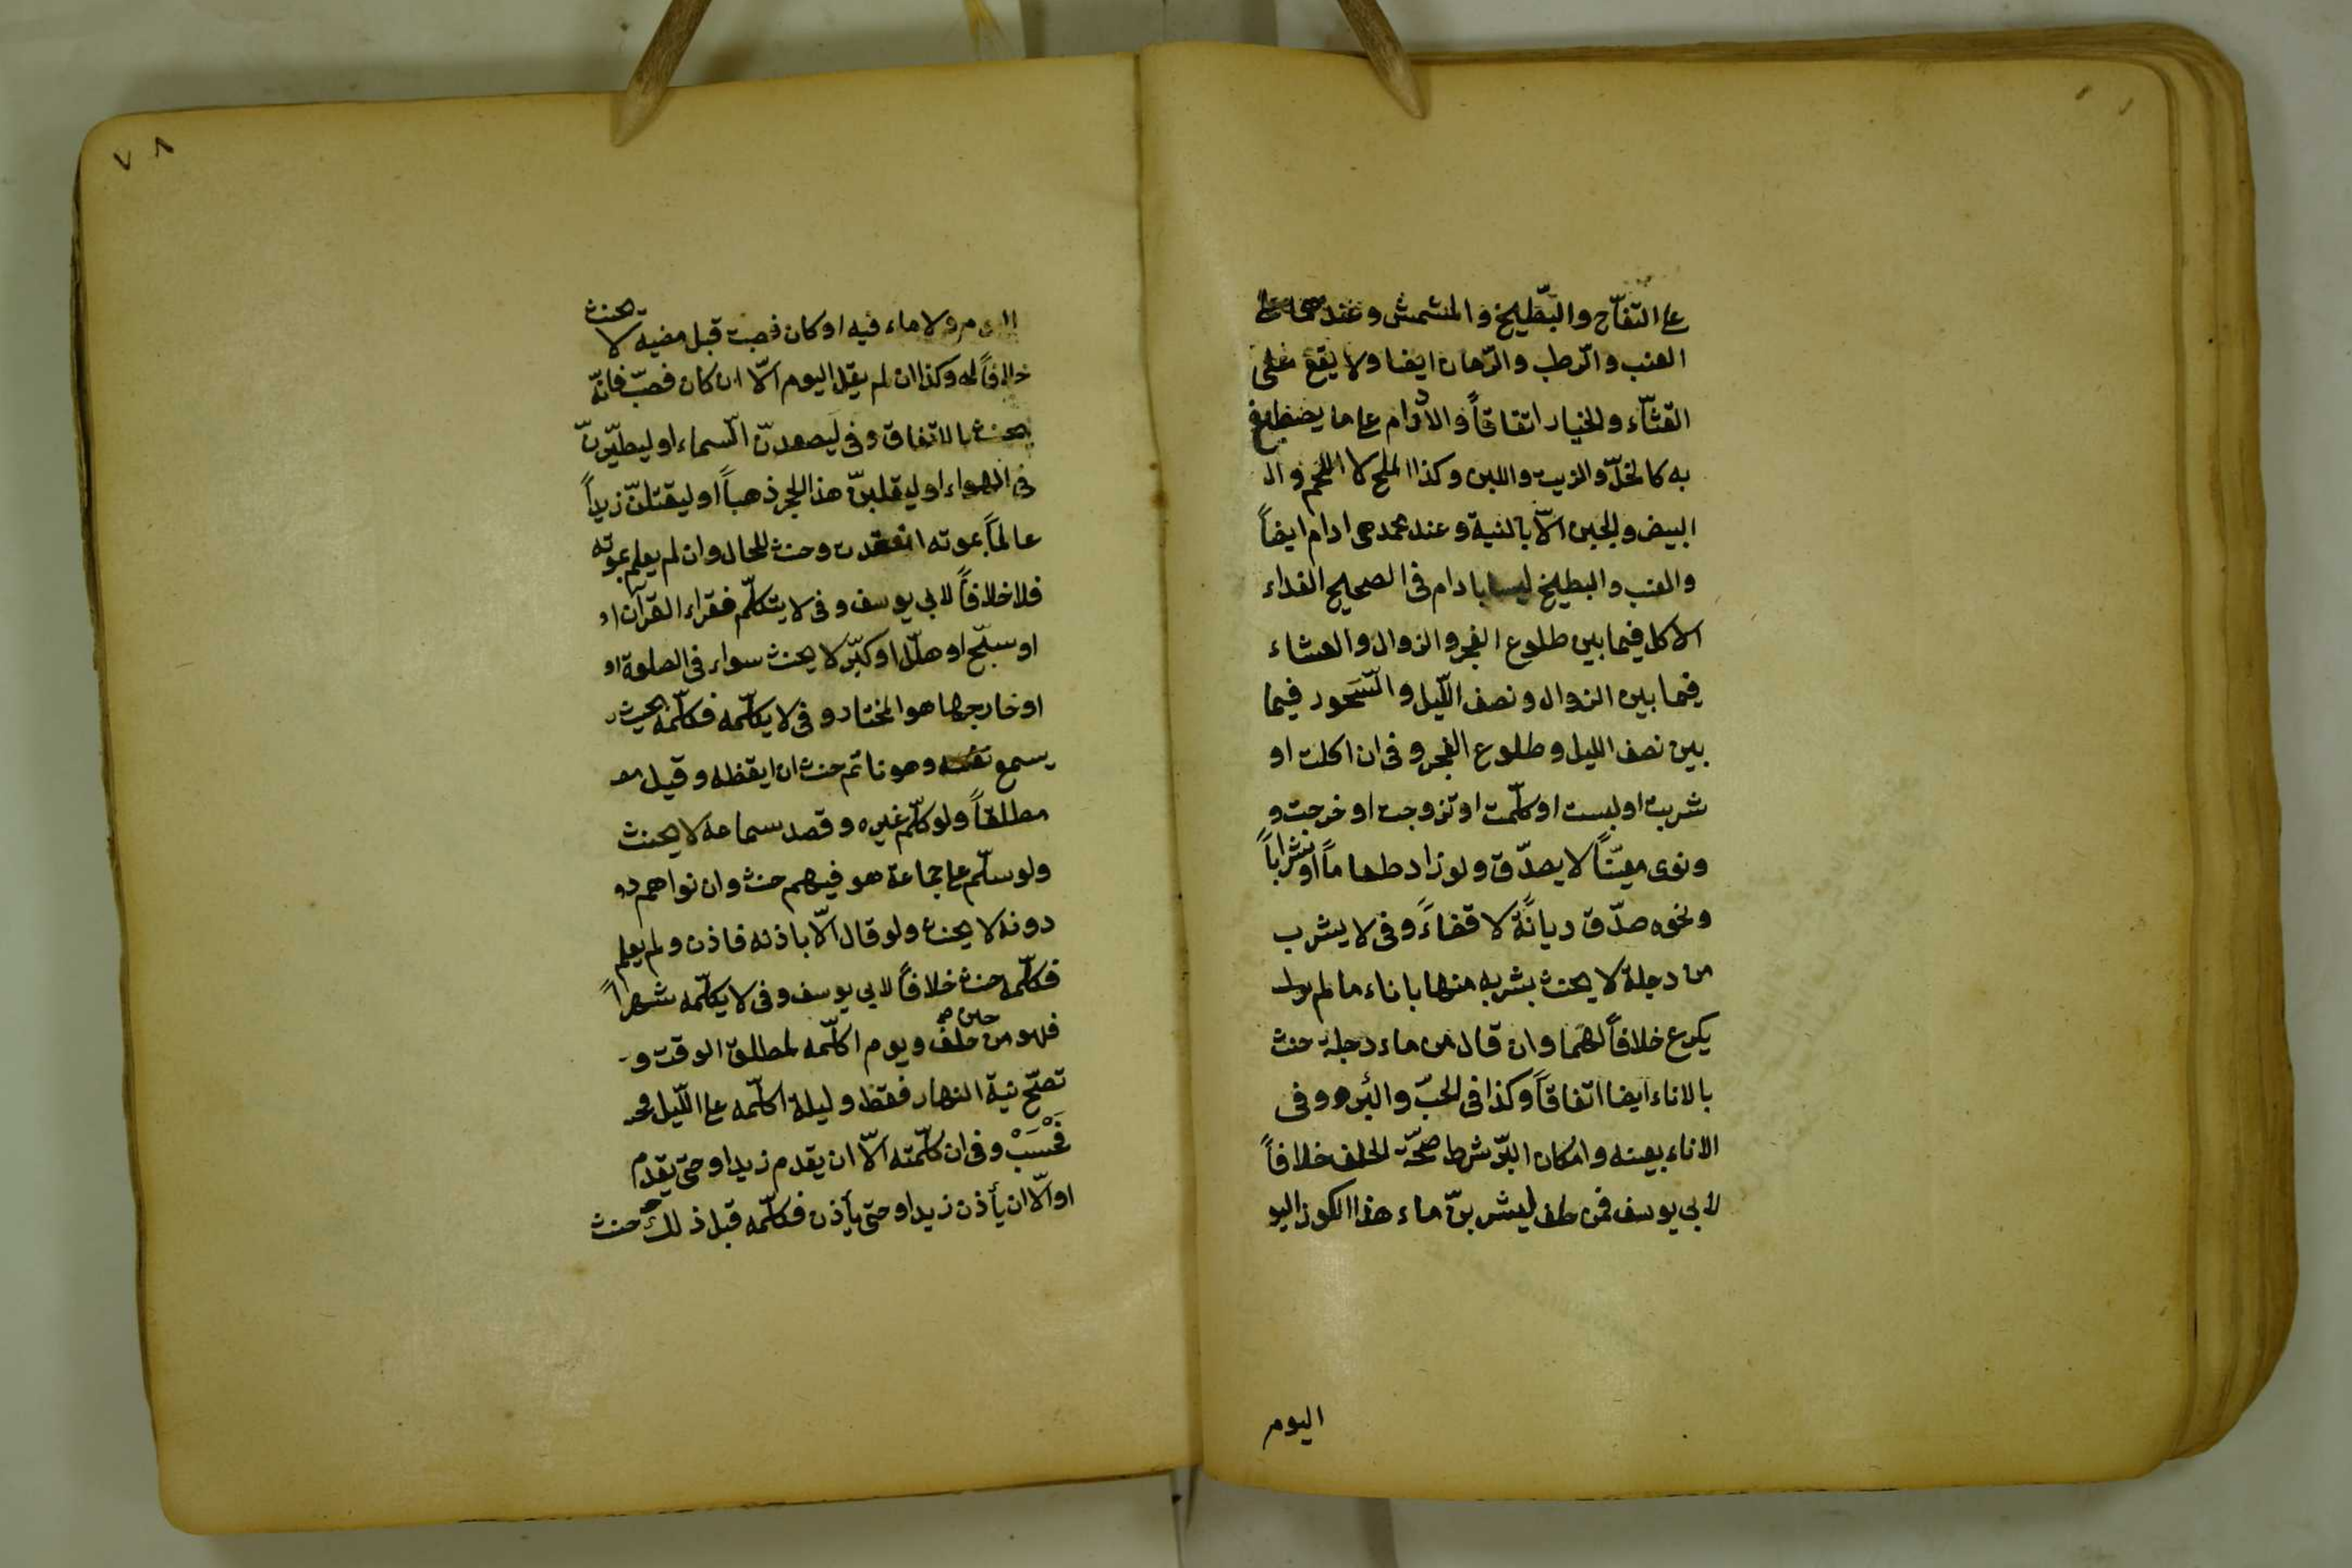 على التفّاح والبّطيخ والمشمش وعندهما على
العنب والرّطب والرّمان ايضا ولا يقع على
القثّآء والخيار اتفاقاً والادام على ما يصطبغ
به كالخلّ والزيت واللبن وكذا الملح لا اللحم وال
البيض والجبن الّا بالنية وعند محمد هي ادام ايضاً
والعنب والبطيخ ليسا بادام في الصحيح الغداء
الاكل فيما بين طلوع الفجر والزوال والعشاء
فيما بين الزوال ونصف اللّيل والسّحور فيما
بين نصف الليل وطلوع الفجر وفي ان اكلت او
شربت او لبست او كلّمت او تزوجت او خرجت و
ونوى معيّناً لا يصدّق ولو زاد طعاماً او شراباً
ونحوه صدّق ديانًة لا قضاءً وفي لا يشرب
من دجلة لا يحنث بشربه منها باناء ما لم
يكرع خلافاً لهما وان قال من ماء دجلة حنث
بالاناء ايضا اتفاقاً وكذا في الحبّ والبئر وفي
الاناء بعينه وامكان البّر شرط صحّة الحلف خلافاً
لابي يوسف فمن حلف ليشربنّ ماء هذا الكوز اليو
اليوم
٧٨
اليوم ولا ماء فيه او كان فصب قبل مضيه لا يحنث
خلافاً له وكذا ان لم يقل اليوم الّا ان كان فصبّ فانّه
يحنث بالاتفاق وفي ليصعدنّ السّماء او ليطيّرنّ
في الهواء او ليقلبنّ هذا الحجر ذهباً او ليقتلنّ زيداً
عالماً بموته انعقدت وحنث للحال وان لم يعلم بموته
فلا خلافاً لابي يوسف وفي لا يتكلّم فقراء القرآن او
او سبّح او هلّل او كبّر لا يحنث سواء في الصلوة او
او خارجها هو المختار وفي لا يكلّمه فكلّمه بحيث
يسمع نفسه وهو نائم حنث ان ايقظه وقيل
مطلقاً ولو كلّم غيره وقصد سماعه لا يحنث
ولو سلّم على جماعة هو فيهم حنث وان نواهم دو
دونه لا يحنث ولو قال الّا باذنه فاذن ولم يعلم
فكلّمه حنث خلافاً لابي يوسف وفي لا يكلّمه شهراً
فهو من حين حلف ويوم اكلّمه لمطلق الوقت و
تصحّ نية النهار فقط وليلة اكلّمه على اللّيل
فحَسَبْ وفي ان كلّمته الّا ان يقدم زيد او حتى يقدم
او الّا ان يأذن زيد او حتى يأذن فكلّمه قبل ذلك حنث